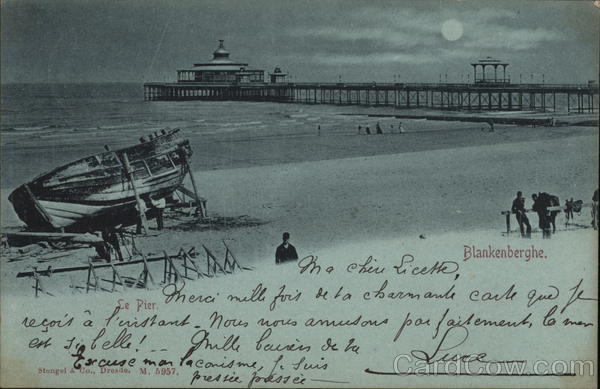 Blankenberghe.
Le Pier.
Ma chère Licette,
Merci mille fois de ta charmante carte que je
reçois à l'instant - Nous nous amusons parfaitement, la mer
est si belle! - Mille baisers de ta
Excuse mon laconisme, je suis
pressée pressée
Luce
Stengel & Co., Dresde. M. 5957.
CardCow.com